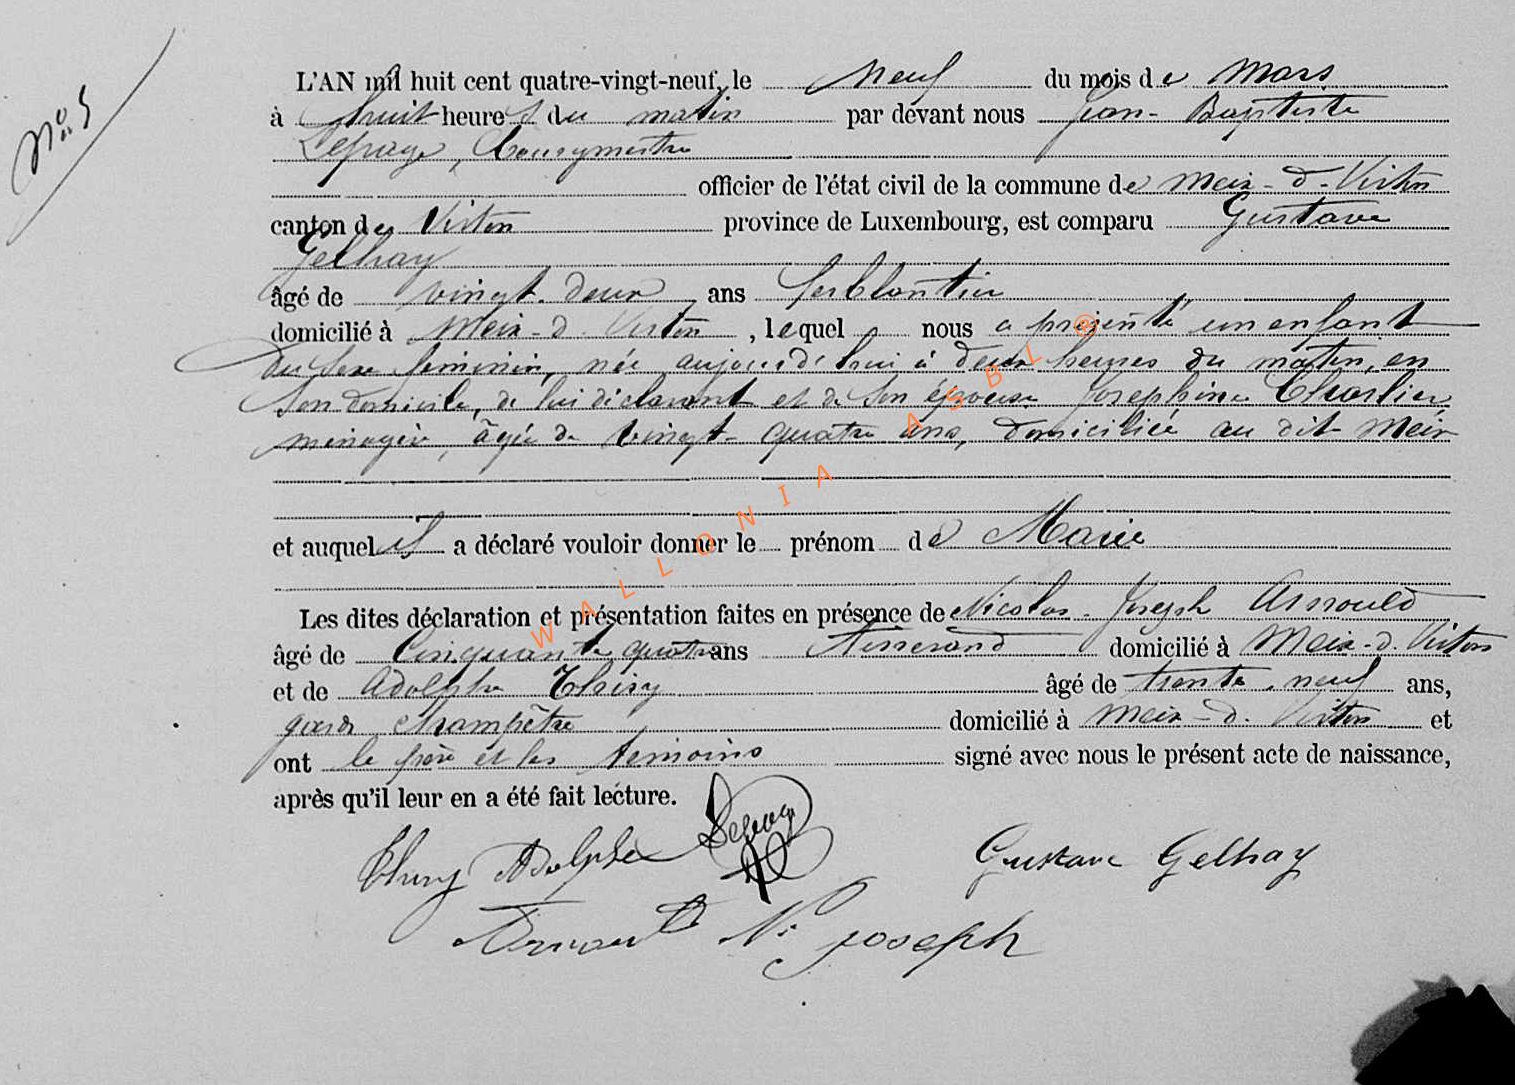 N° 5
L'AN mil huit cent quatre-vingt-neuf, le neuf du mois de Mars
à huit heures du matin par devant nous Jean-Baptiste
Lepage, Bourgmestre
officier de l'état civil de la commune de Meix-d-Virton
canton de Virton province de Luxembourg, est comparu Gustave
Gelhay
âgé de vingt-deux ans ferblantier
domicilié à Meix-d-Virton, lequel nous a présenté un enfant
du sexe féminin, née aujourd'hui à deux heures du matin, en
son domicile, de lui déclarant et de son épouse Joséphine Charlier
ménagère, âgée de vingt-quatre ans, domiciliée au dit Meix
et auquel il a déclaré vouloir donner le prénom de Marie
Les dites déclaration et présentation faites en présence de Nicolas-Joseph Arnould
âgé de cinquante quatre ans tisserand domicilié à Meix-d-Virton
et de Adolphe Thiry âgé de trente-neuf ans,
garde champêtre domicilié à Meix-d-Virton et
ont le père et les témoins signé avec nous le présent acte de naissance,
après qu'il leur en a été fait lecture.
Thiry Adolphe Lepage Gustave Gelhay
Arnould N. joseph
WALLONIA ASBL ®